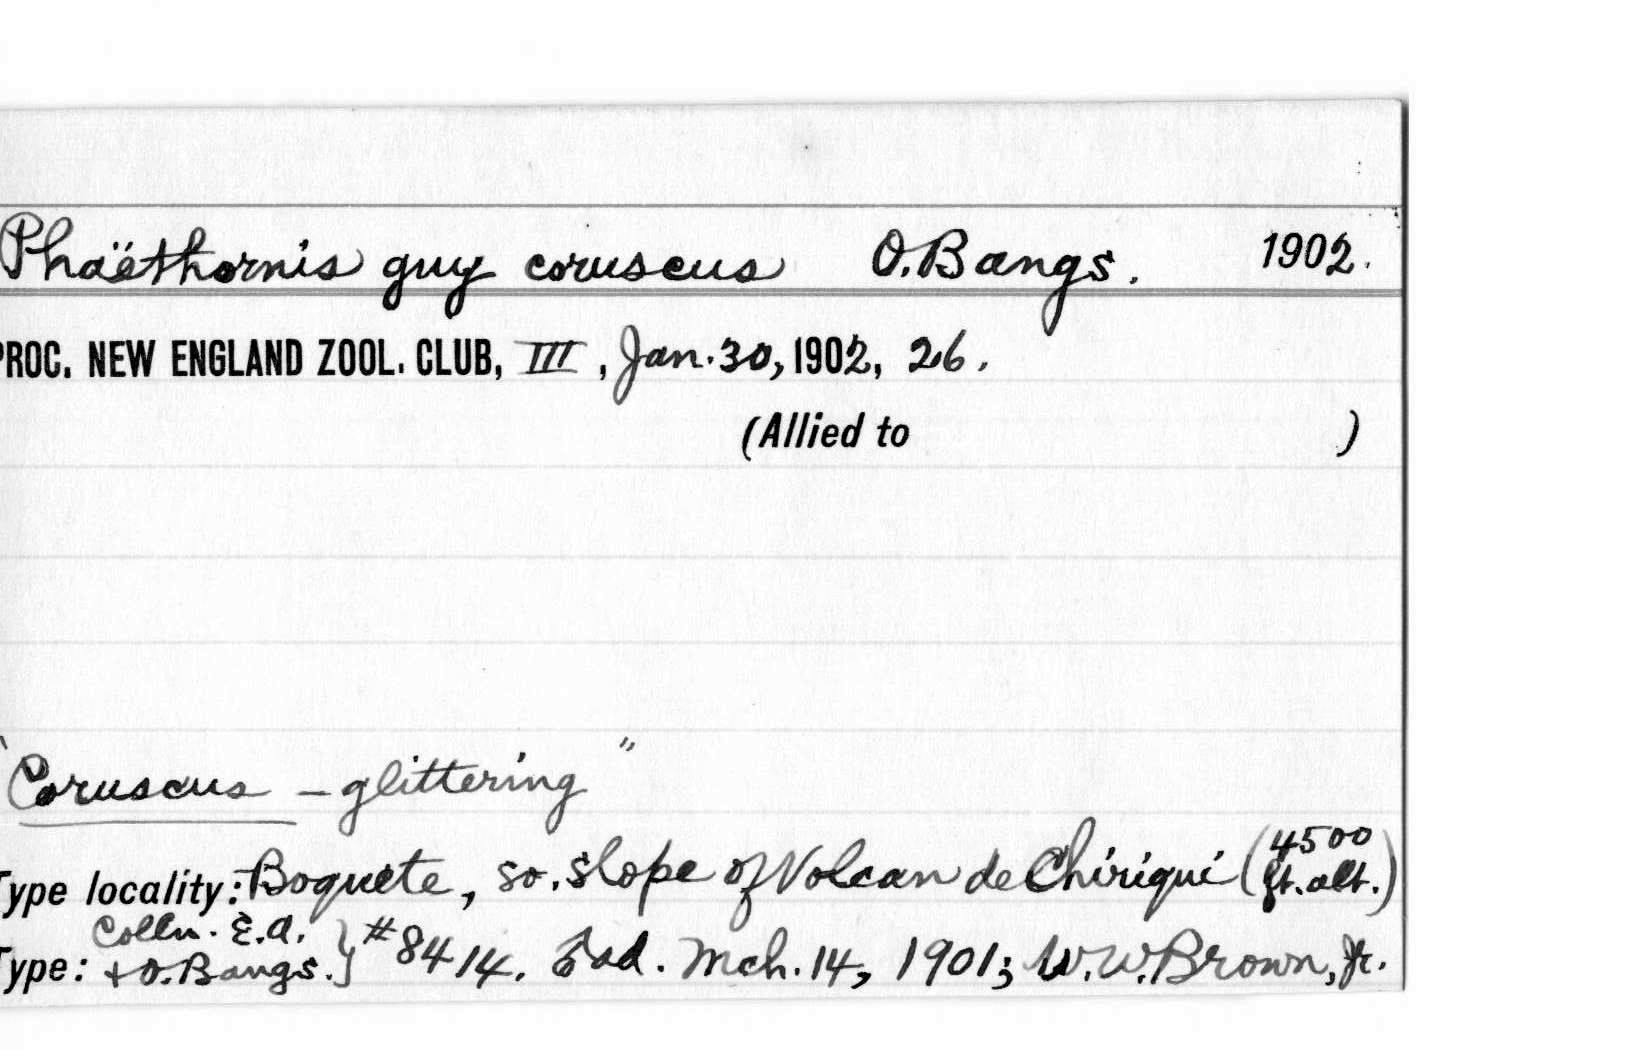 Phaëthornis guy coruscus O. Bangs. 1902.
PROC. NEW ENGLAND ZOOL. CLUB, III, Jan. 30, 1902, 26.
(Allied to )
"Coruscus – glittering"
Type locality: Boquete, so. slope of Volcan de Chiriqui (4500 ft. alt.)
Type: Colln. E.A. + O. Bangs. } #8414. ♂ ad. Mch. 14, 1901; W.W. Brown, Jr.